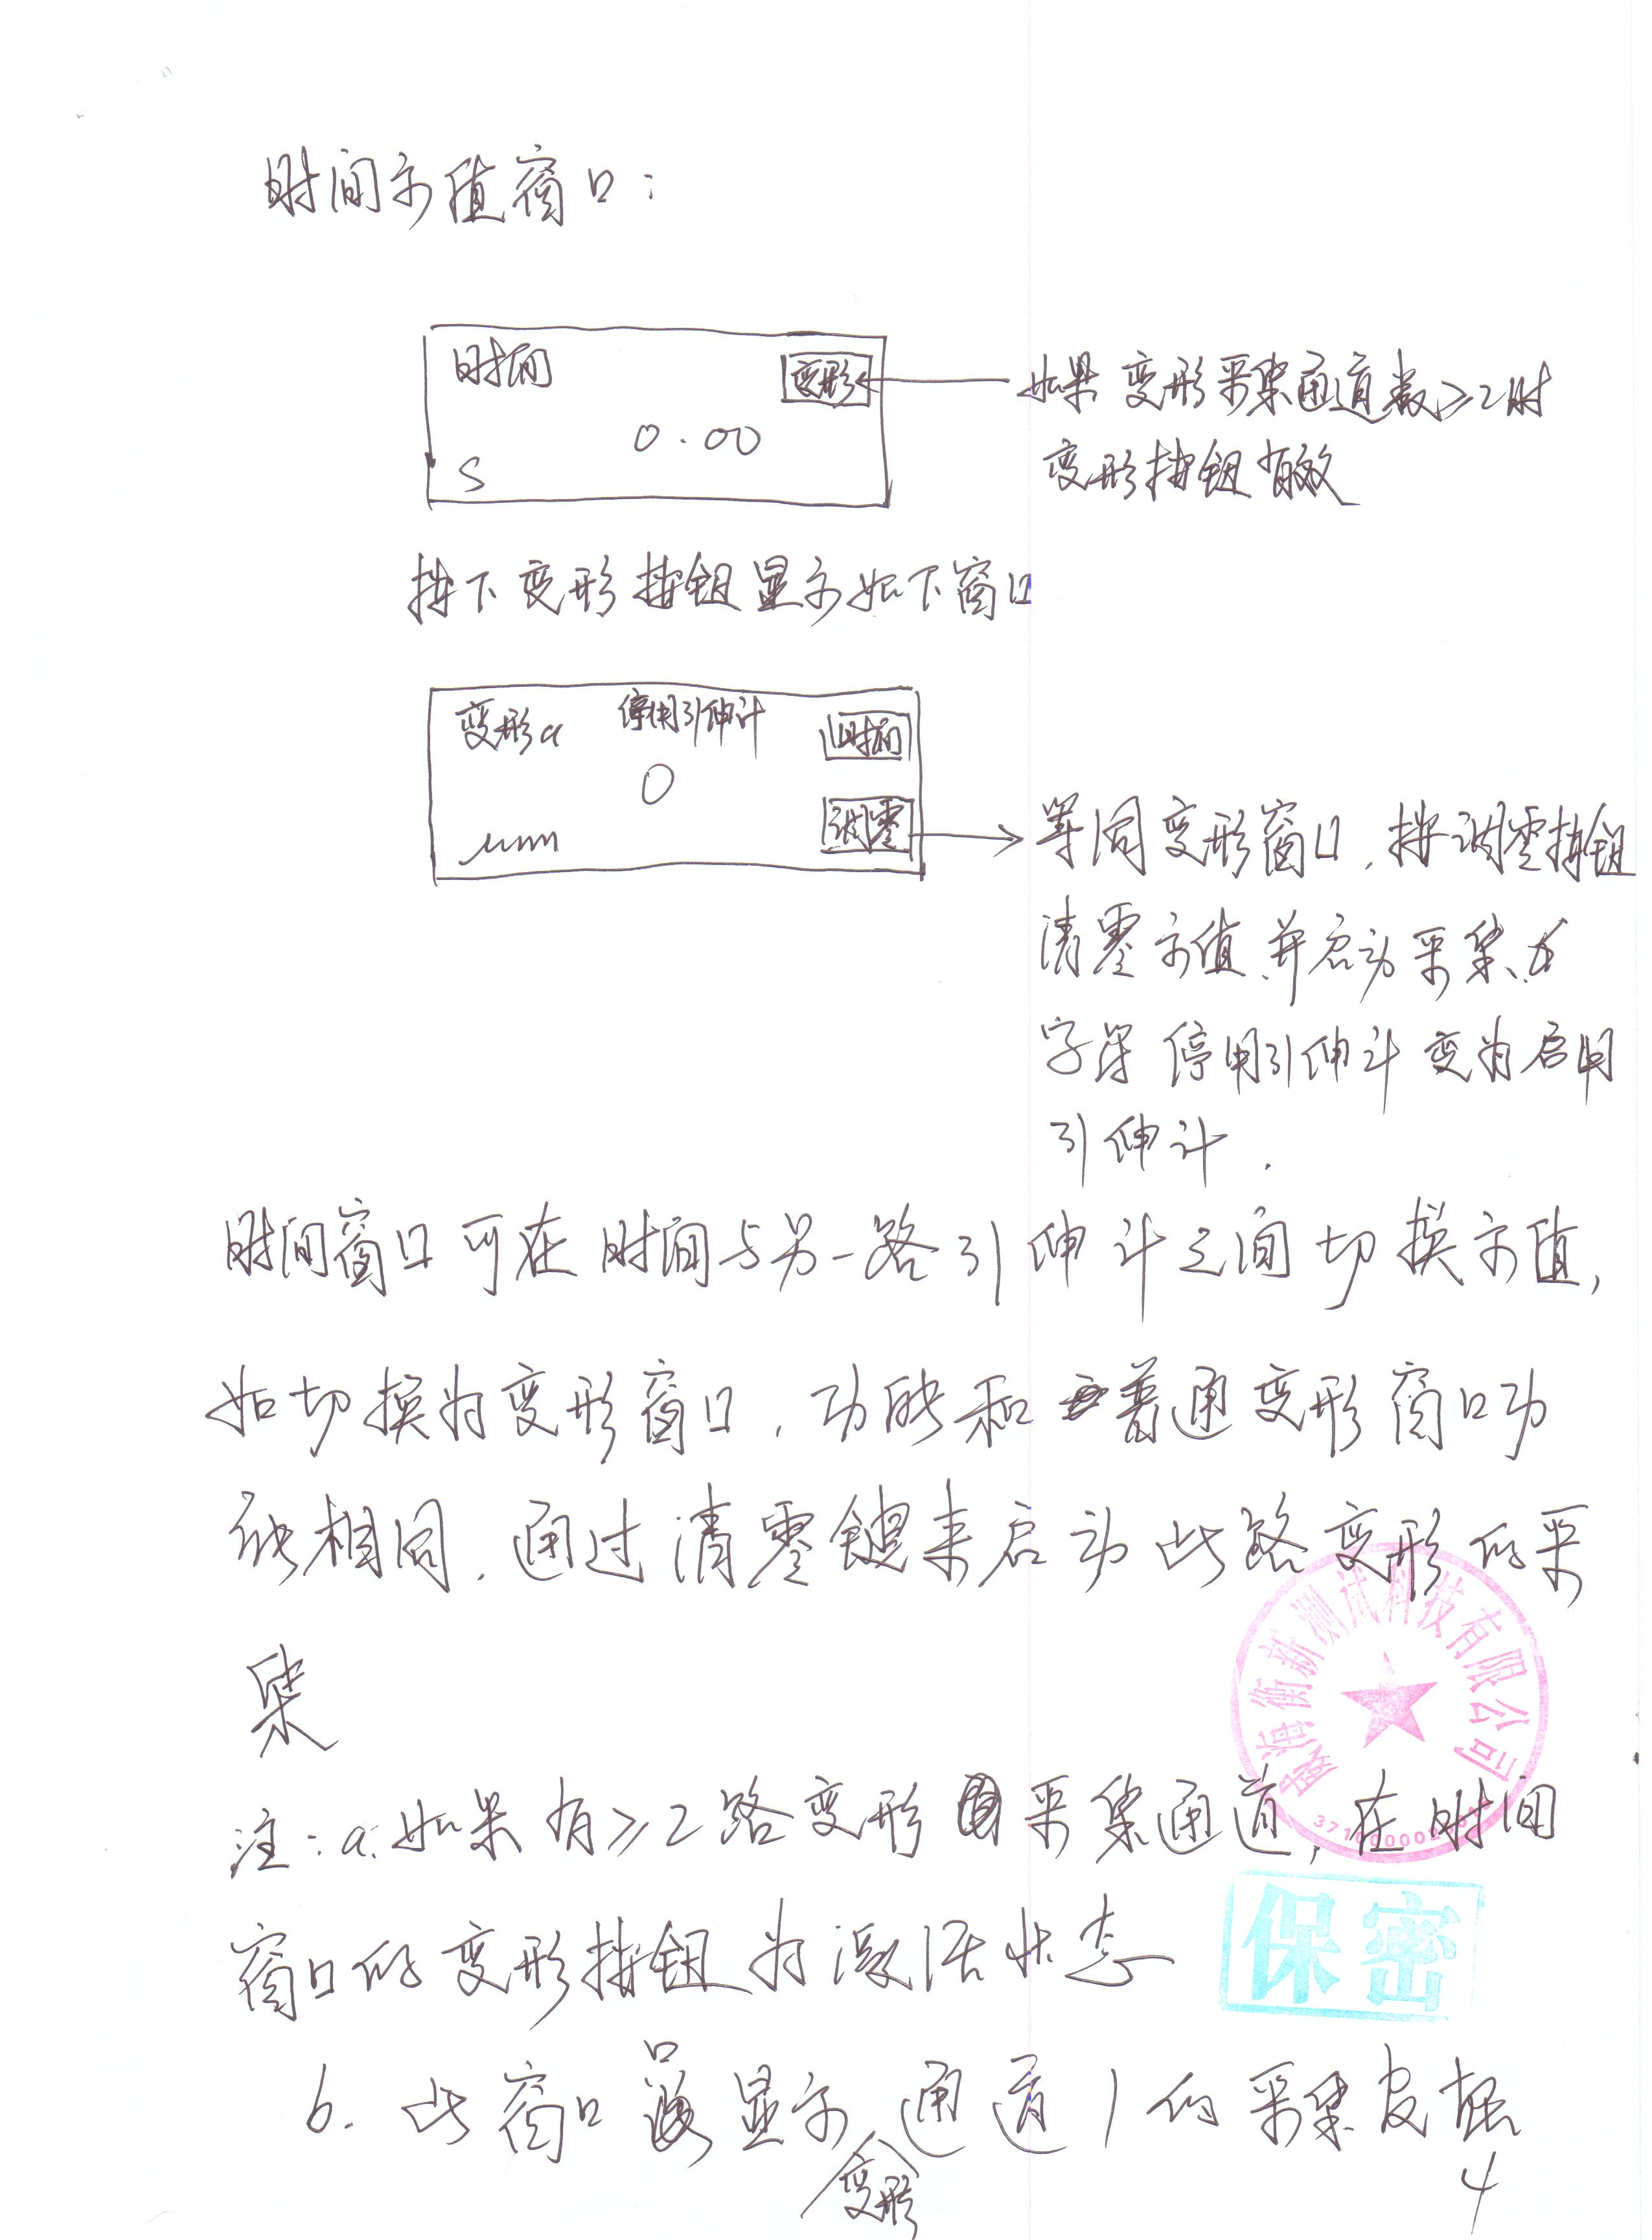 时间示值窗口：
时间
变形
0.00
S
如果变形采集通道数≥2时
变形按钮有效
按下变形按钮显示如下窗口
变形a
停用引伸计
时间
0
调零
μm
等同变形窗口，按调零按钮
清零示值并启动采集
字符停用引伸计变为启用
引伸计.
时间窗口可在时间与另一路引伸计之间切换示值，
如切换为变形窗口，功能和普通变形窗口功
能相同，通过清零键来启动此路变形的采
集
注：a.如果有≥2路变形采集通道，在时间
窗口的变形按钮为激活状态
b.此窗口只显示变形通道1的采集
4
海衡新测试科技有限公司
保密